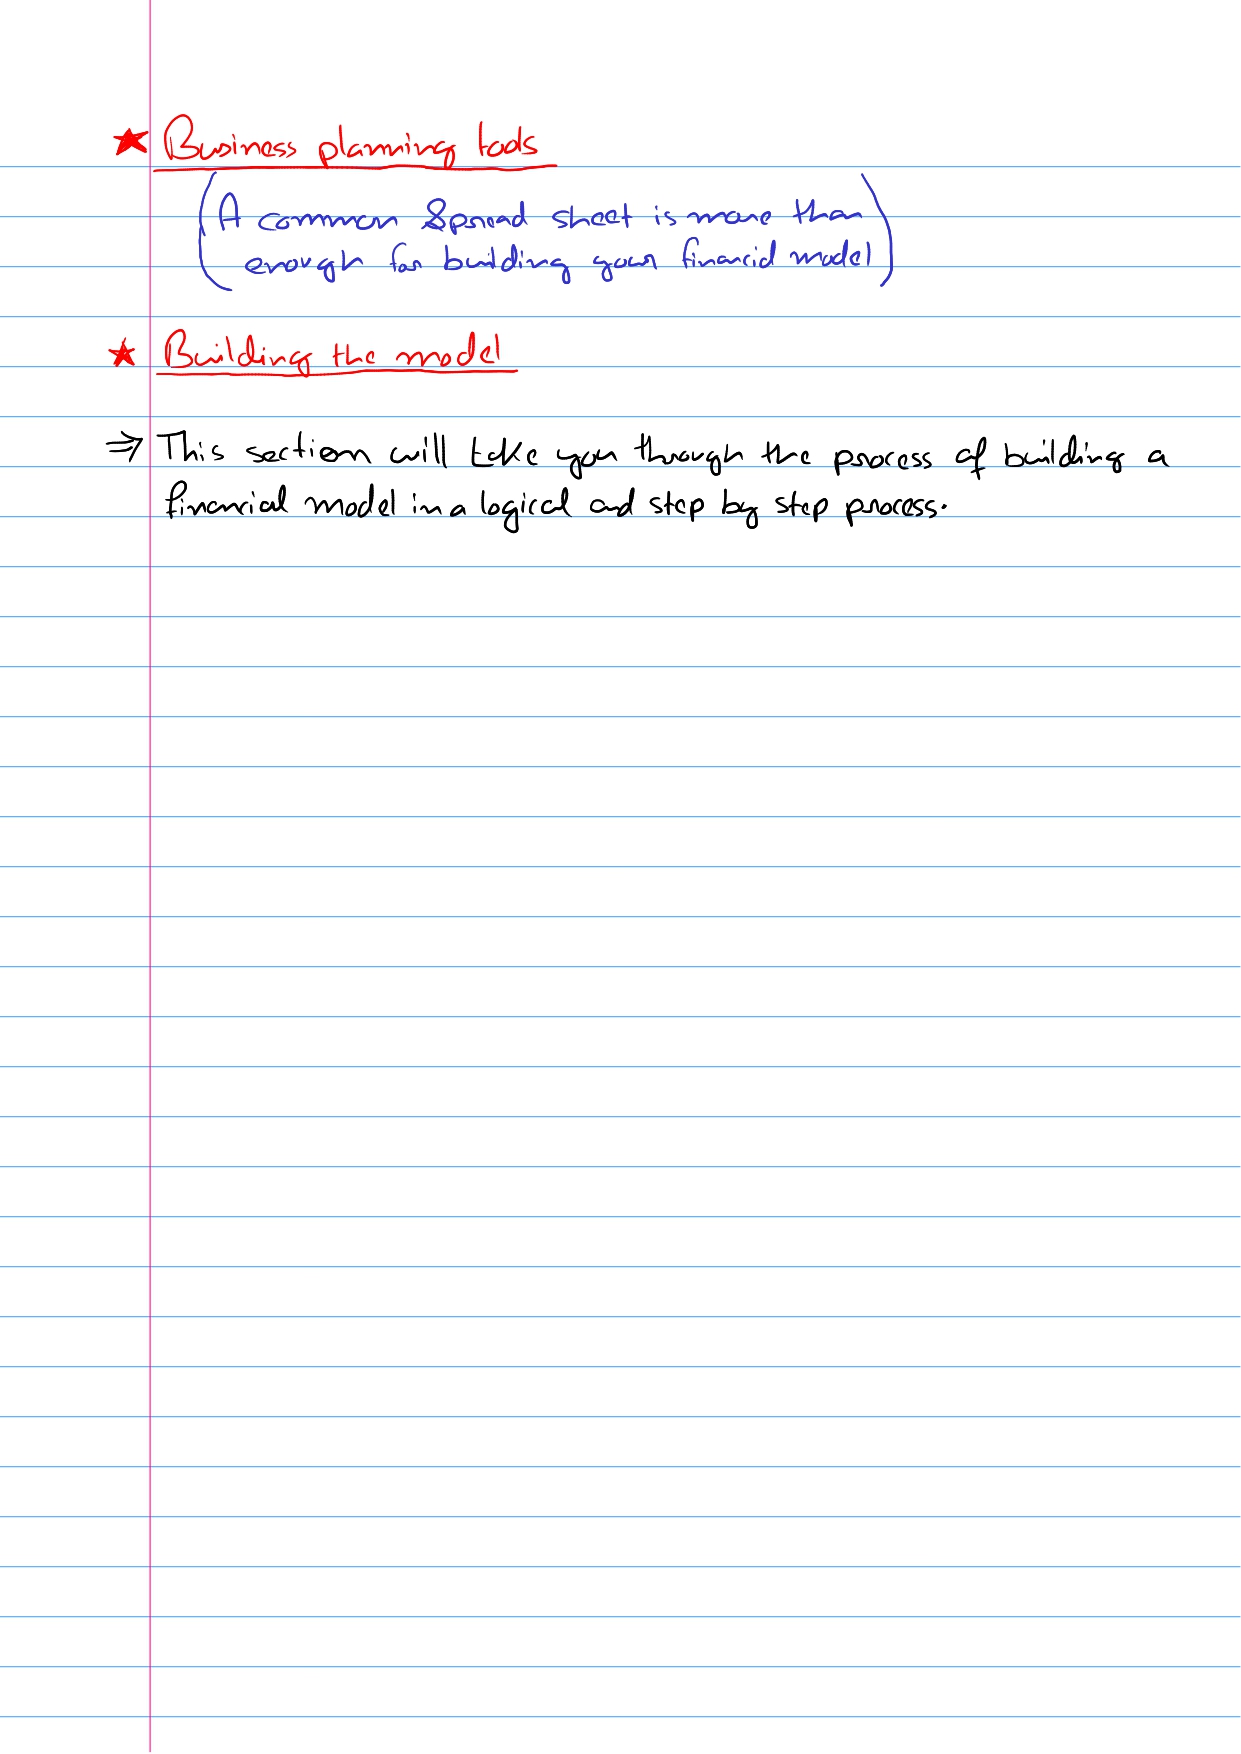 ★ Business planning tools
(A common Spread sheet is more than
enough for building your financial model)
★ Building the model
⇒ This section will take you through the process of building a
financial model in a logical and step by step process.